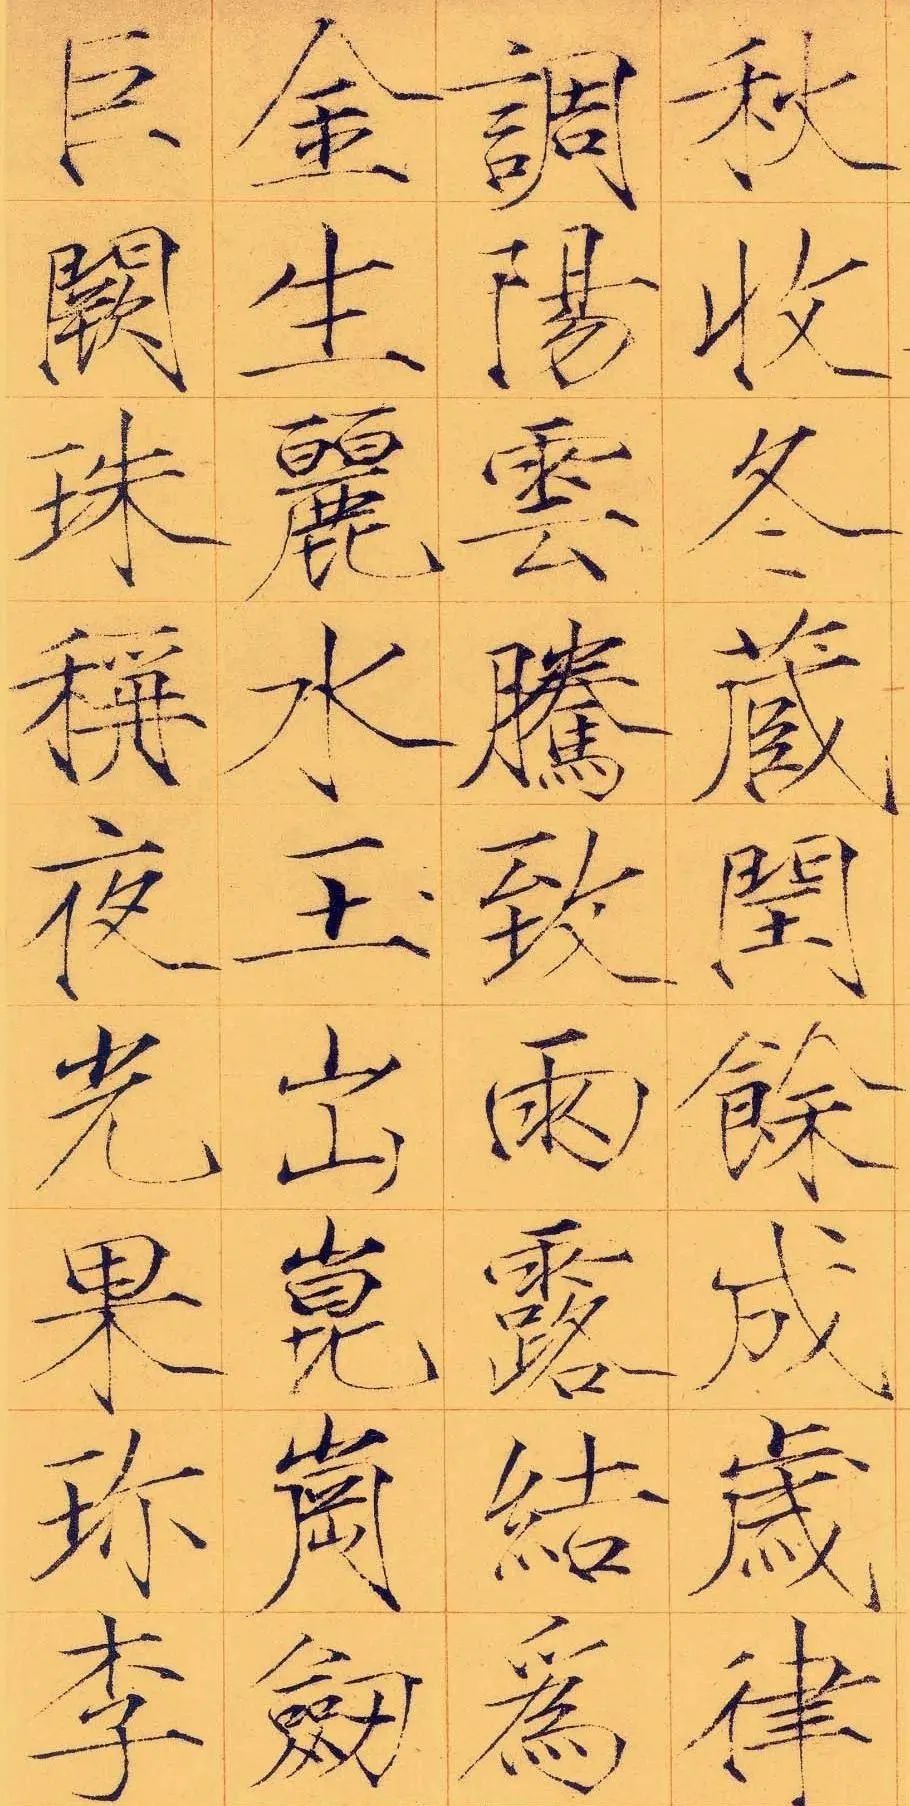 秋收冬蔵閏餘成歲律
調陽雲騰致雨露結爲
金生麗水玉出崑崗劒
巨闕珠稱夜光果珎李